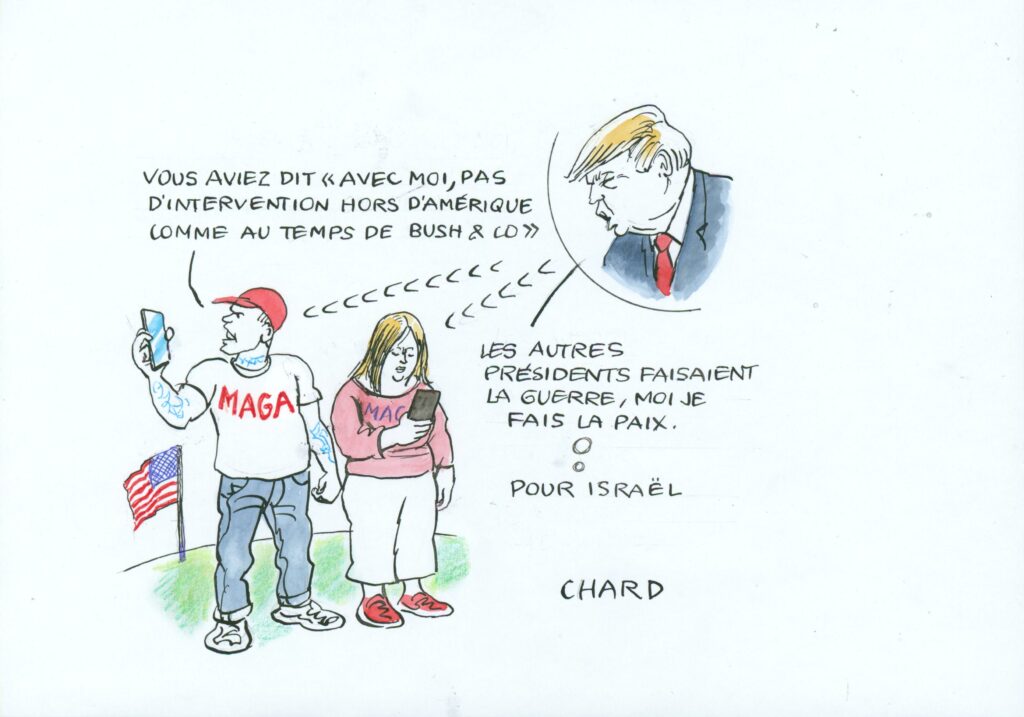 VOUS AVIEZ DIT « AVEC MOI, PAS
D'INTERVENTION HORS D'AMÉRIQUE
COMME AU TEMPS DE BUSH & CO »
MAGA
MAG
LES AUTRES
PRÉSIDENTS FAISAIENT
LA GUERRE, MOI JE
FAIS LA PAIX.
POUR ISRAËL
CHARD